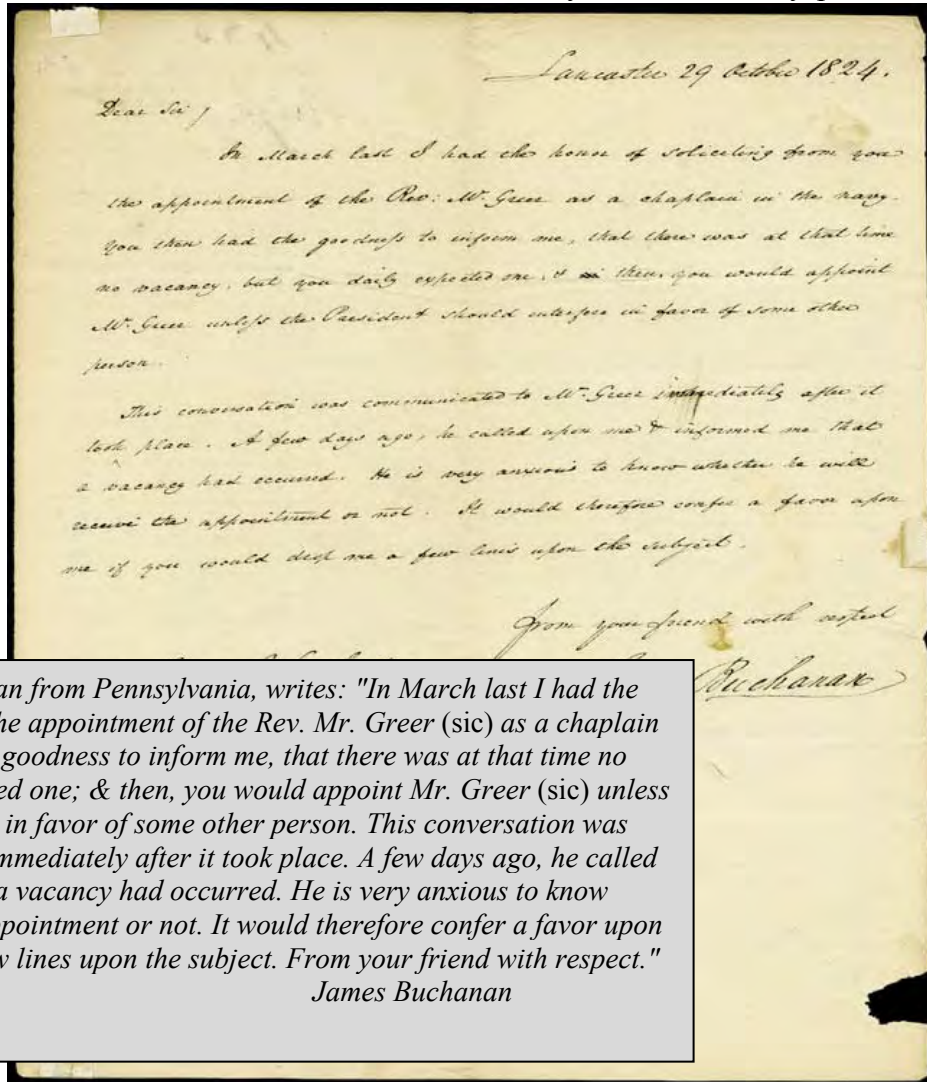 Lancaster 29 October 1824.
Dear Sir /
In March last I had the honor of soliciting from you
the appointment of the Rev: Mr. Greer as a chaplain in the navy.
You then had the goodness to inform me, that there was at that time
no vacancy, but you daily expected one, & then, you would appoint
Mr. Greer unless the President should interfere in favor of some other
person.
This conversation was communicated to Mr. Greer immediately after it
took place. A few days ago, he called upon me & informed me that
a vacancy had occurred. He is very anxious to know whether he will
receive the appointment or not. It would therefore confer a favor upon
me if you would drop me a few lines upon the subject.
from your friend with respect
Buchanan
an from Pennsylvania, writes: "In March last I had the
he appointment of the Rev. Mr. Greer (sic) as a chaplain
goodness to inform me, that there was at that time no
ed one; & then, you would appoint Mr. Greer (sic) unless
in favor of some other person. This conversation was
mmediately after it took place. A few days ago, he called
a vacancy had occurred. He is very anxious to know
ppointment or not. It would therefore confer a favor upon
w lines upon the subject. From your friend with respect."
James Buchanan